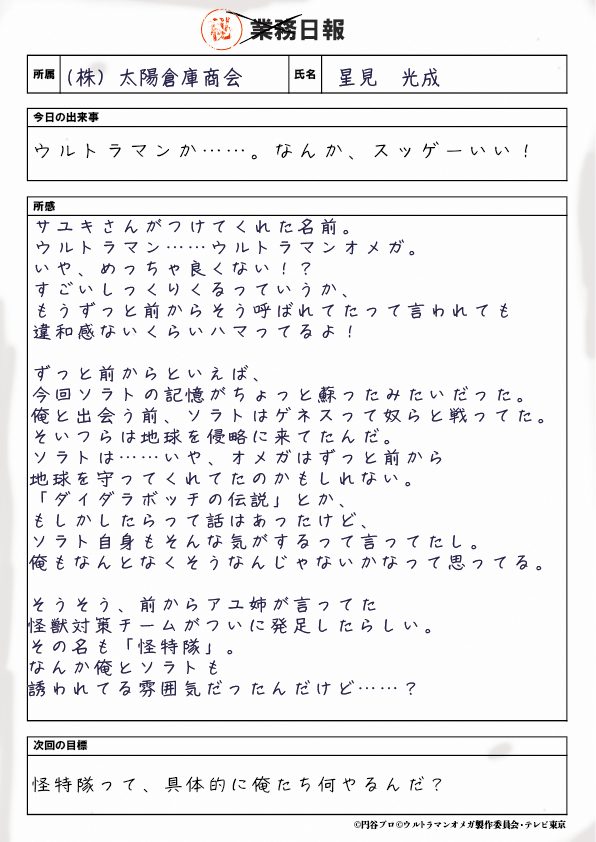 業務日報
所属 (株) 太陽倉庫商会 氏名 星見 光成
今日の出来事
ウルトラマンか……。なんか、スッゲーいい！
所感
サユキさんがつけてくれた名前。
ウルトラマン……ウルトラマンオメガ。
いや、めっちゃ良くない！？
すごいしっくりくるっていうか、
もうずっと前からそう呼ばれてたって言われても
違和感ないくらいハマってるよ！
ずっと前からといえば、
今回ソラトの記憶がちょっと蘇ったみたいだった。
俺と出会う前、ソラトはゲネスって奴らと戦ってた。
そいつらは地球を侵略に来てたんだ。
ソラトは……いや、オメガはずっと前から
地球を守ってくれてたのかもしれない。
「ダイダラボッチの伝説」とか、
もしかしたらって話はあったけど、
ソラト自身もそんな気がするって言ってたし。
俺もなんとなくそうなんじゃないかなって思ってる。
そうそう、前からアユ姉が言ってた
怪獣対策チームがついに発足したらしい。
その名も「怪特隊」。
なんか俺とソラトも
誘われてる雰囲気だったんだけど……？
次回の目標
怪特隊って、具体的に俺たち何やるんだ？
©円谷プロ©ウルトラマンオメガ製作委員会・テレビ東京